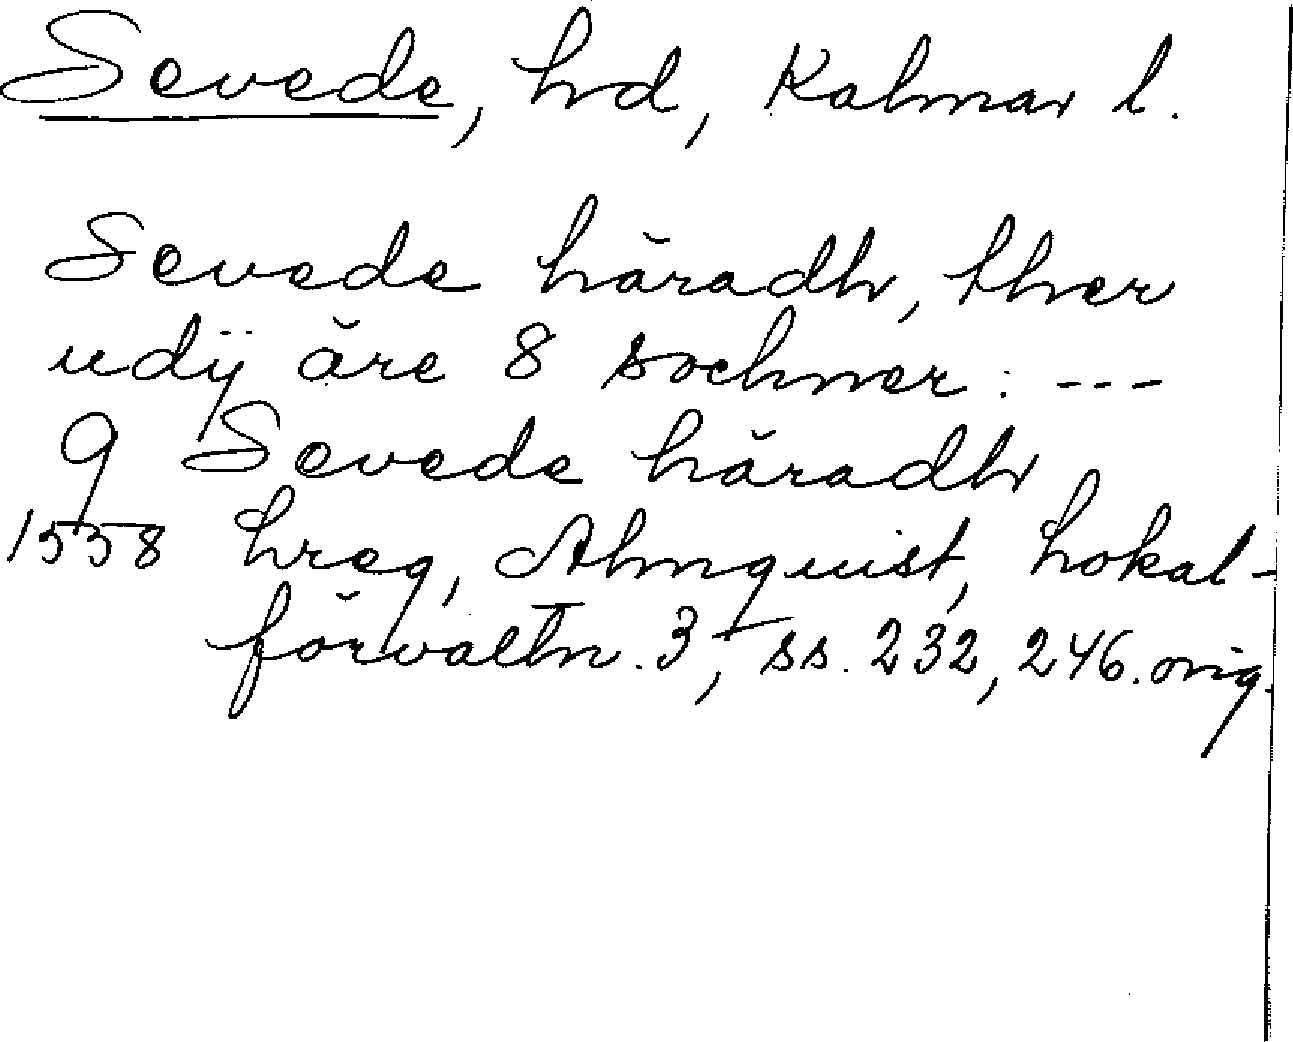 Sevede, hd, Kalmar l.
Sevede häradh, ther
udij äre 8 sochner: ---
9 Sevede häradh
1558 hreg, Almquist, Lokal-
förvaltn. 3, ss. 232, 246. orig.